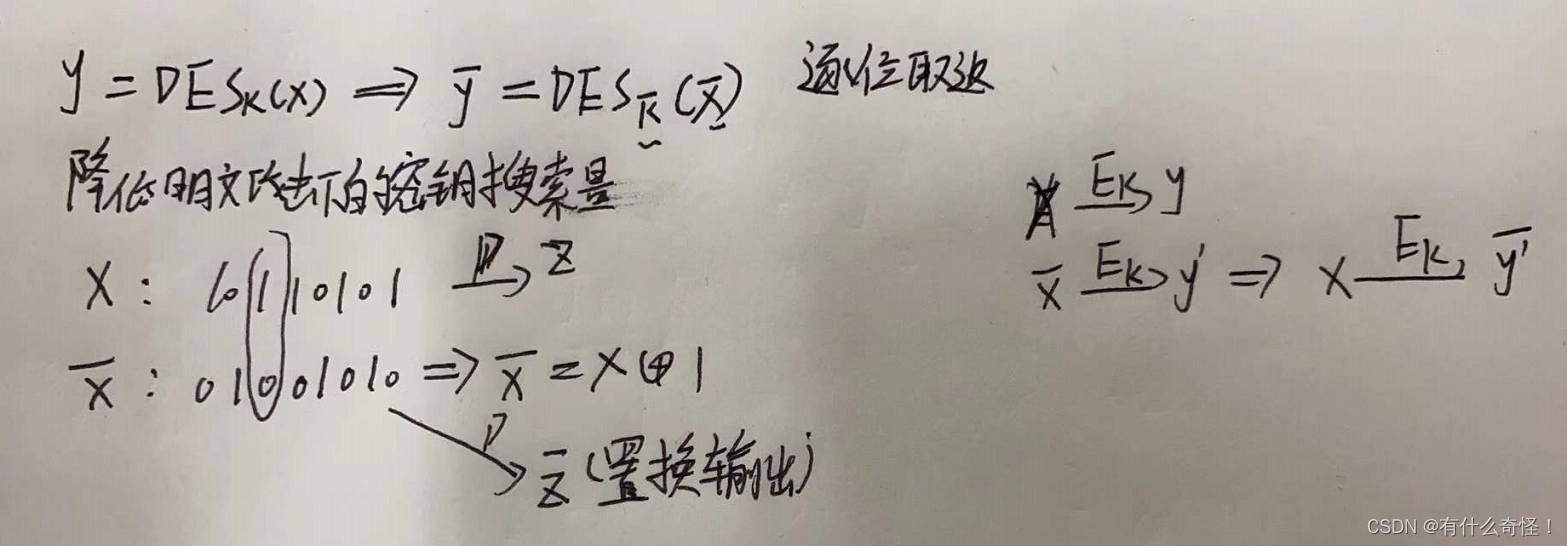 y = DES_K(x) ⟹ ȳ = DES_K̄(x̄) 逐位取返
降低明文攻击下的密钥搜索量
X : 10110101 P→ z
x̄ : 01001010 ⟹ x̄ = x ⊕ 1
P→ z̄ (置换输出)
x E_K→ y
x̄ E_K→ y' ⟹ x E_K→ ȳ'
CSDN @有什么奇怪!